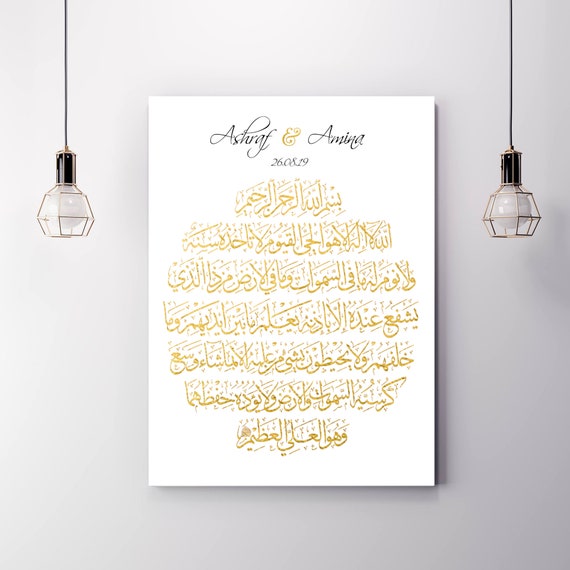 Ashraf & Amina
26.08.19
بسم الله الرحمن الرحيم
الله لا اله الا هو الحي القيوم لا تاخذه سنة
ولا نوم له ما في السموات وما في الارض من ذا الذي
يشفع عنده الا باذنه يعلم ما بين ايديهم وما
خلفهم ولا يحيطون بشيء من علمه الا بما شاء وسع
كرسيه السموات والارض ولا يؤده حفظهما
وهو العلي العظيم